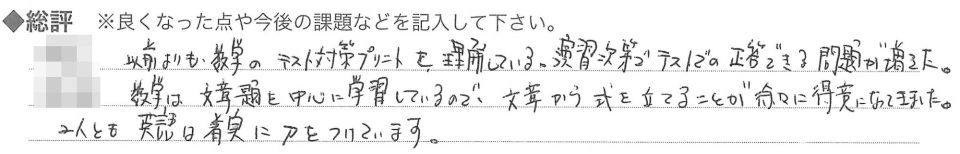 ◆総評 ※良くなった点や今後の課題などを記入して下さい。
以前よりも数学のテスト対策プリントを理解している。演習次第でテストでの正答できる問題が増えた。
数学は文章題を中心に学習しているので、文章から式を立てることが徐々に得意になってきました。
2人とも英語は着実に力をつけています。